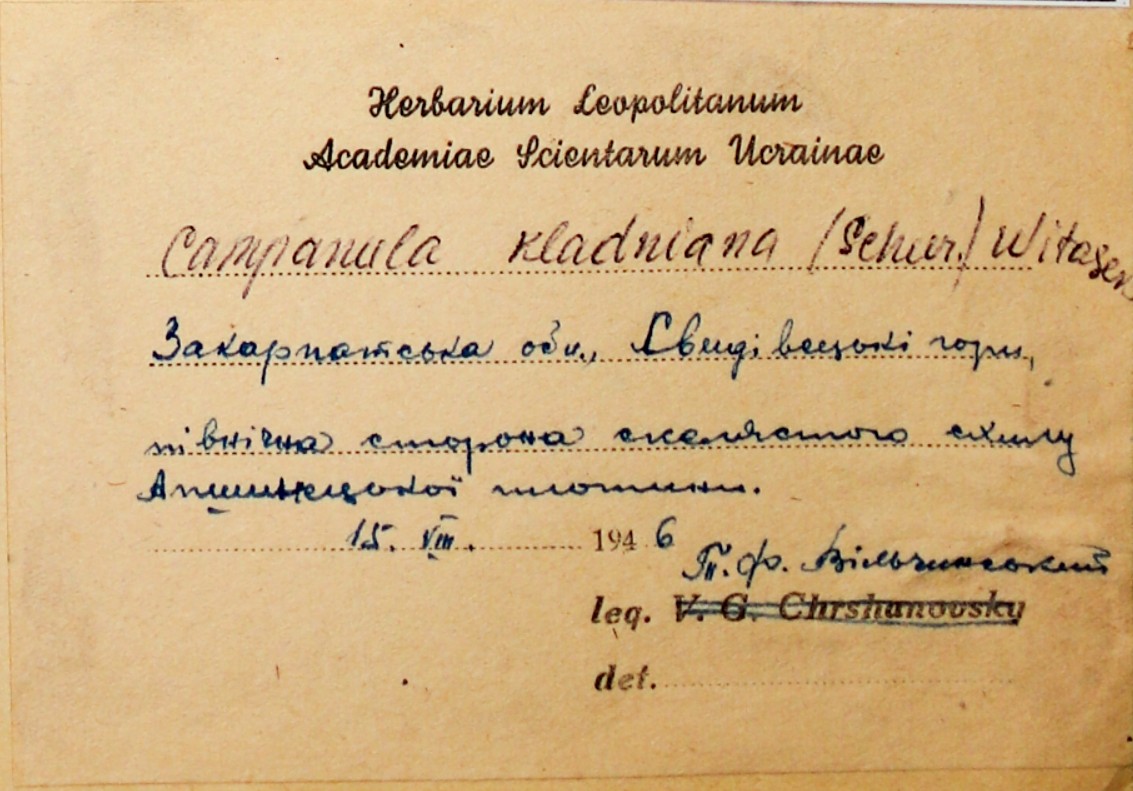 Herbarium Leopolitanum
Academiae Scientarum Ucrainae
Campanula kladniana (Schur.) Witasek
Закарпатська обл., Свидівецькі гори,
північна сторона скелястого схилу
Апшинецької
15. VIII. 1946
Т. Ф. Вільчинський
leg. V. G. Chrshanovsky
det.